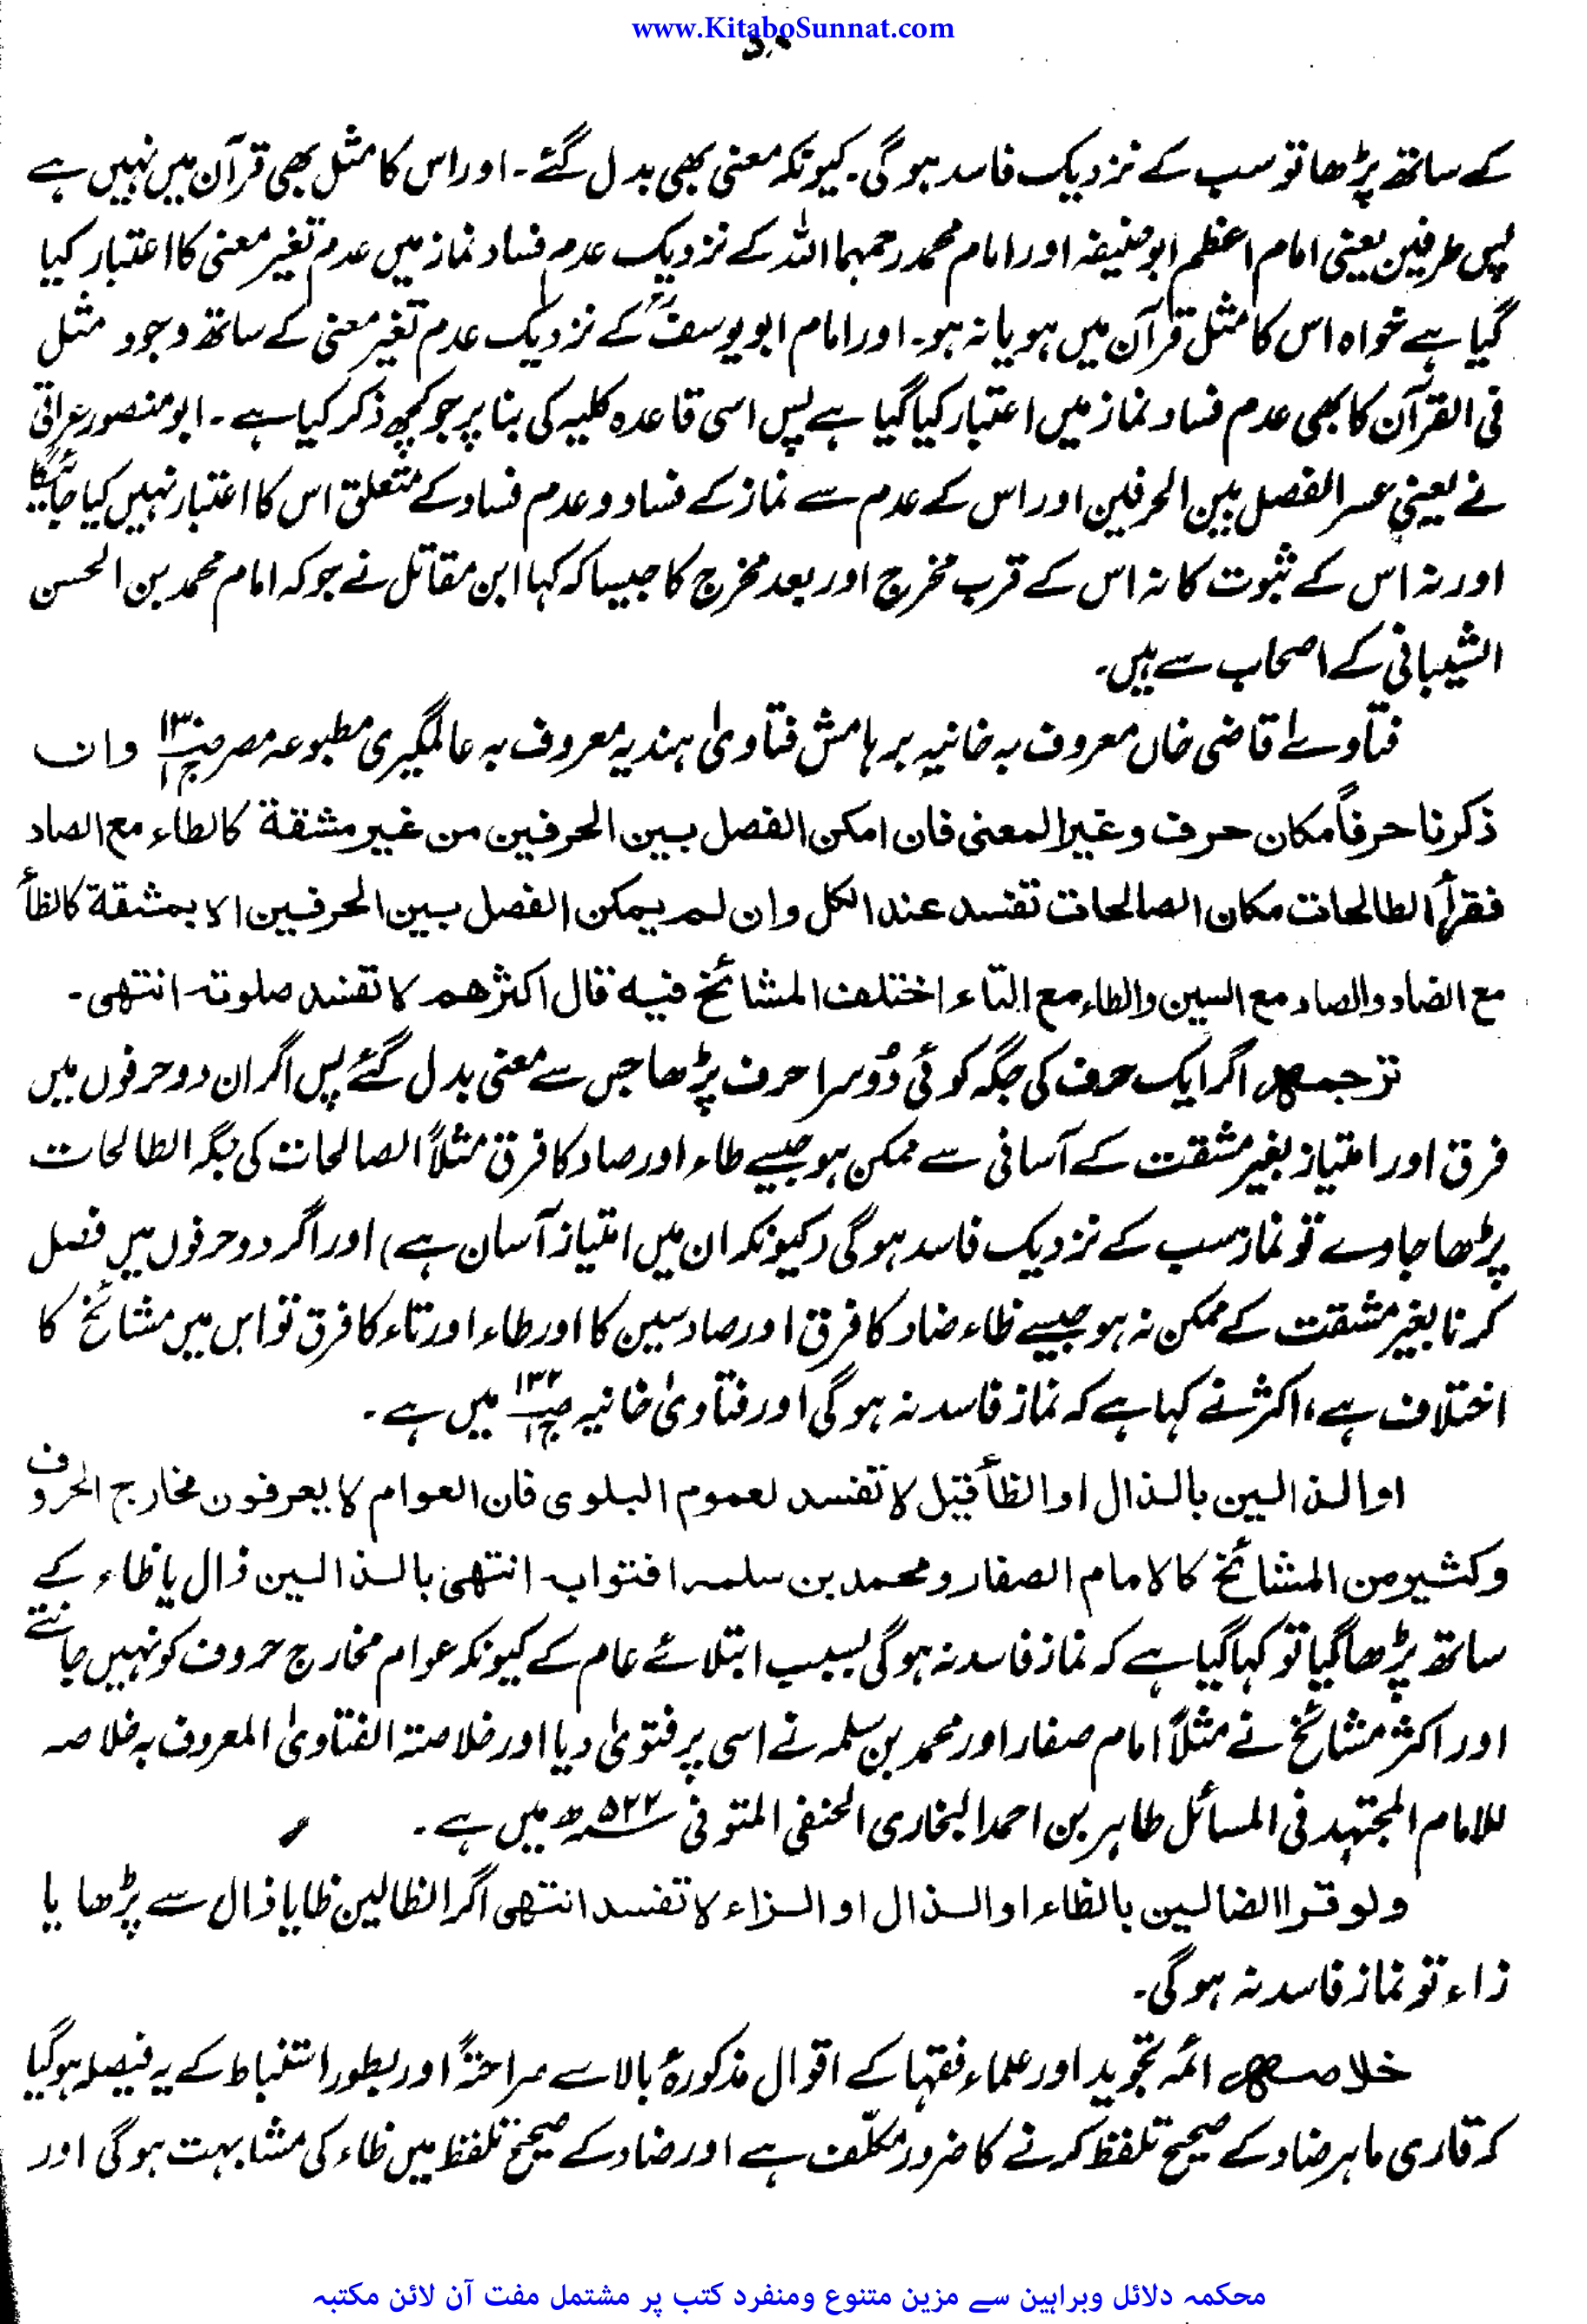 www.KitaboSunnat.com
۵۰
کے ساتھ پڑھا تو سب کے نزدیک فاسد ہوگی۔ کیونکہ معنی بھی بدل گئے۔ اور اس کا مثل بھی قرآن میں نہیں ہے
پس طرفین یعنی امام اعظم ابوحنیفہ اور امام محمد رحمہما اللہ کے نزدیک عدم فساد نماز میں عدم تغیر معنی کا اعتبار کیا
گیا ہے خواہ اس کا مثل قرآن میں ہو یا نہ ہو۔ اور امام ابویوسفؒ کے نزدیک عدم تغیر معنی کے ساتھ وجود مثل
فی القرآن کا بھی عدم فساد نماز میں اعتبار کیا گیا ہے پس اسی قاعدہ کلیہ کی بنا پر جو کچھ ذکر کیا ہے۔ ابومنصور عراقی
نے یعنی عسر الفصل بین الحرفین اور اس کے عدم سے نماز کے فساد و عدم فساد کے متعلق اس کا اعتبار نہیں کیا جائیگا
اور نہ اس کے ثبوت کا نہ اس کے قرب مخرج اور بعد مخرج کا جیسا کہ کہا ابن مقاتل نے جو کہ امام محمد بن الحسن
الشیبانی کے اصحاب سے ہیں۔
فتاوےٰ قاضی خاں معروف بہ خانیہ برہامش فتاویٰ ہندیہ معروف بہ عالمگیری مطبوعہ مصر ص۱۳۰ ج۱ وان
ذکرنا حرفاً مکان حرف وغیرالمعنی فان امکن الفصل بین الحرفین من غیر مشقة کالطاء مع الصاد
فقرأ الطالحات مکان الصالحات تفسد عند الکل وان لم یمکن الفصل بین الحرفین الا بمشقة کالظأ
مع الضاد والصاد مع السین والطاء مع التاء اختلف المشائخ فیہ قال اکثرھم لا تفسد صلوتہ انتھی۔
ترجمہ اگر ایک حرف کی جگہ کوئی دُوسرا حرف پڑھا جس سے معنی بدل گئے پس اگر ان دو حرفوں میں
فرق اور امتیاز بغیر مشقت کے آسانی سے ممکن ہو جیسے طاء اور صاد کا فرق مثلاً الصالحات کی جگہ الطالحات
پڑھا جاوے تو نماز سب کے نزدیک فاسد ہوگی (کیونکہ ان میں امتیاز آسان ہے) اور اگر دو حرفوں میں فصل
کرنا بغیر مشقت کے ممکن نہ ہو جیسے ظاء ضاد کا فرق اور صاد سین کا اور طاء اور تاء کا فرق تو اس میں مشائخ کا
اختلاف ہے، اکثر نے کہا ہے کہ نماز فاسد نہ ہوگی اور فتاویٰ خانیہ ص۱۳۲ ج۱ میں ہے۔
او الذالین بالذال او الظأ قیل لا تفسد لعموم البلوی فان العوام لا یعرفون مخارج الحروف
وکثیر من المشائخ کالامام الصفار ومحمد بن سلمہ افتوا بہ انتھی بالذالین ذال یا ظاء کے
ساتھ پڑھا گیا تو کہا گیا ہے کہ نماز فاسد نہ ہوگی بسبب ابتلائے عام کے کیونکہ عوام مخارج حروف کو نہیں جانتے
اور اکثر مشائخ نے مثلاً امام صفار اور محمد بن سلمہ نے اسی پر فتویٰ دیا اور خلاصۃ الفتاویٰ المعروف بہ خلاصہ
للامام المجتہد فی المسائل طاہر بن احمد البخاری الحنفی المتوفی ۵۲۲ھ میں ہے۔
ولو قرا الضالین بالظاء او الذال او الزاء لا تفسد انتھی اگر الظالین ظا یا ذال سے پڑھا یا
زاء تو نماز فاسد نہ ہوگی۔
خلاصہ ائمہ تجوید اور علماء فقہا کے اقوال مذکورۂ بالا سے صراحتہً اور بطور استنباط کے یہ فیصلہ ہوگیا
کہ قاری ماہر ضاد کے صحیح تلفظ کرنے کا ضرور مکلّف ہے اور ضاد کے صحیح تلفظ میں ظاء کی مشابہت ہوگی اور
محکمہ دلائل وبراہین سے مزین متنوع ومنفرد کتب پر مشتمل مفت آن لائن مکتبہ